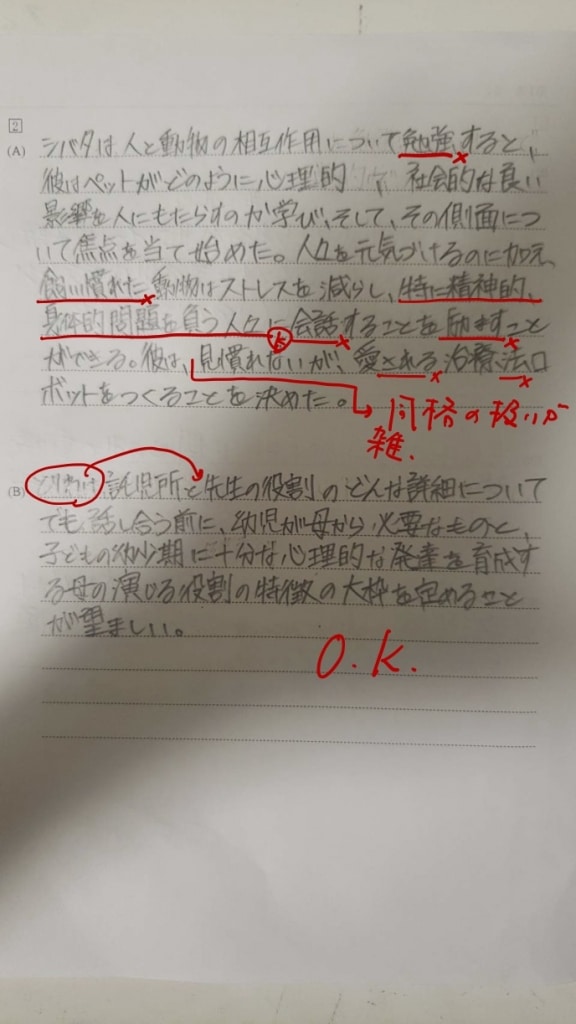 2
(A) シバタは人と動物の相互作用について勉強すると、
彼はペットがどのように心理的、社会的な良い
影響を人にもたらすのか学び、そして、その側面につ
いて焦点を当て始めた。人々を元気づけるのに加え、
飼い慣れた動物はストレスを減らし、特に精神的、
身体的問題を負う人々に会話することを励ますこと
ができる。彼は、見慣れないが、愛される治療法ロ
ボットをつくることを決めた。
同格の扱いが
雑.
(B) 託児所と先生の役割のどんな詳細について
でも話し合う前に、幼児が母から必要なものと、
子どもの幼少期に十分な心理的な発達を育成す
る母の演じる役割の特徴の大枠を定めること
が望ましい。
O.K.